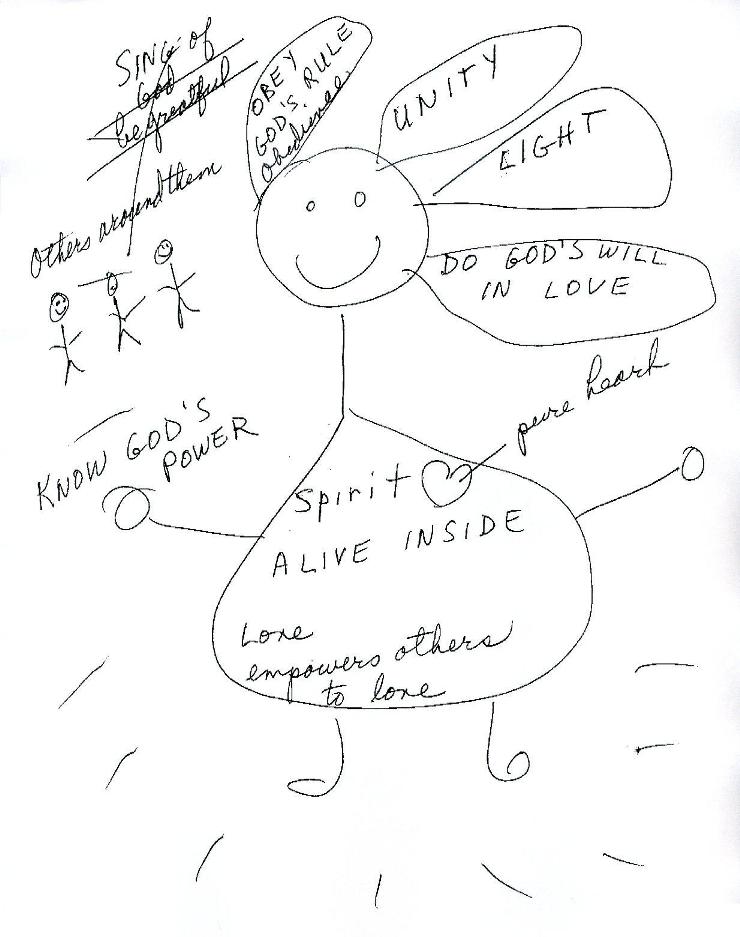 SING of
God
be greatful
Others around them
OBEY
GOD'S RULE
Obedience.
UNITY
LIGHT
DO GOD'S WILL
IN LOVE
pure heart
KNOW GOD'S
POWER
Spirit
ALIVE INSIDE
Love
empowers others
to love